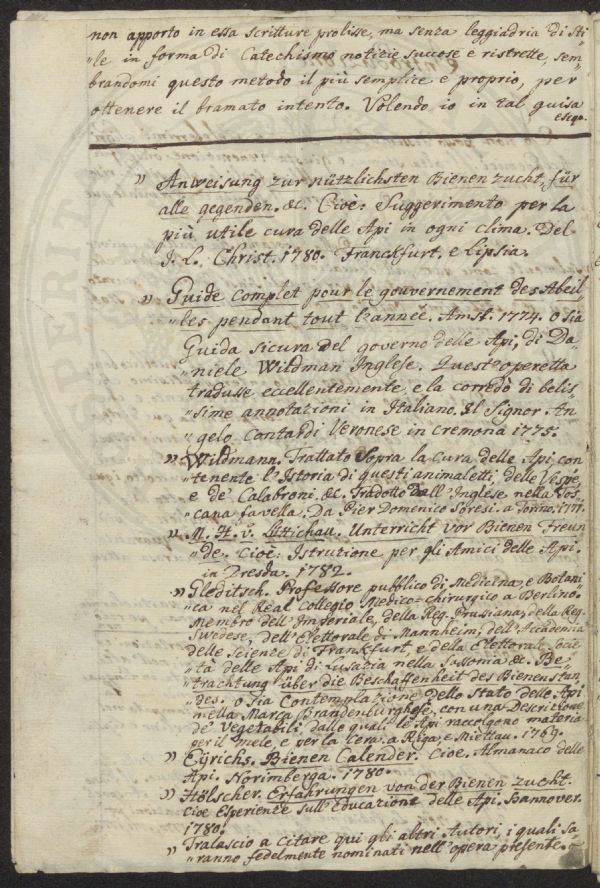 non apporto in essa scritture prolisse, ma senza leggiadria di Sti„
„le in forma di Catechismo notizie succose e ristrette, sem„
brandomi questo metodo il più semplice e proprio, per
ottenere il bramato intento. Volendo io in tal guisa
esegu.
„ Anweisung zur nützlichsten Bienen zucht, für
alle gegenden. &c. Cioè: Suggerimento per la
più utile cura delle Api in ogni clima. Del
J. L. Christ. 1780. Franckfurt. e Lipsia.
„ Guide complet pour le gouvernement des Abeil„
„les pendant tout l'année. Amst. 1774. o sia
Guida sicura del governo delle Api, di Da„
niele Wildman Inglese. Quest'operetta
tradusse eccellentemente, e la corredò di belis„
„sime annotazioni in Italiano. Il Signor. An„
gelo Contardi Veronese in Cremona 1775.
„ Wildmann. Trattato Sopra la cura delle Api, con„
„tenente l'Istoria di questi animaletti, delle Vespe,
e de' Calabroni. &c. Tradotto dall'Inglese nella Tos„
cana favella. Da Pier Domenico Soresi. a Torino. 1771.
„ M. H. v. Lttichau. Unterricht vor Bienen Freun„
„de. cioè: Istruzione per gli Amici delle Api.
in Dresda. 1782.
„ Gleditsch. Professore pubblico di Medicina, e Botani„
„ca nel Real Collegio Medico-chirurgico a Berlino.
Membro dell'Imperiale, della Reg. Prussiana, della Reg.
Svedese, dell'Elettorale di Mannheim, dell'Accademia
delle Scienze di Franckfurt, e della Elettorale Socie„
tà delle Api di Lusazia nella Sassonia &c. Be„
trachtung über die Beschaffenheit des Bienenstan„
„des. o sia Contemplazione dello Stato delle Api
nella Marca Brandenburghese, con una Descrizione
de' Vegetabili, dalle quali le Api raccolgono materia
per il mele, e per la Cera. a Riga, e Miettau. 1769.
„ Eÿrichs. Bienen Calender. Cioè. Almanaco delle
Api. Norimberga. 1780.
„ Hölscher. Erfahrungen von der Bienen zucht.
cioè Esperienze sull'Educazione delle Api. Hannover.
1780.
„ Tralascio a citare qui gli altri Autori, i quali sa„
ranno fedelmente nominati nell'opera presente.